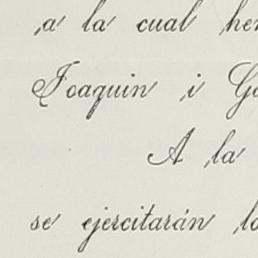 a la cual
Joaquin i
A la
se ejercitarán